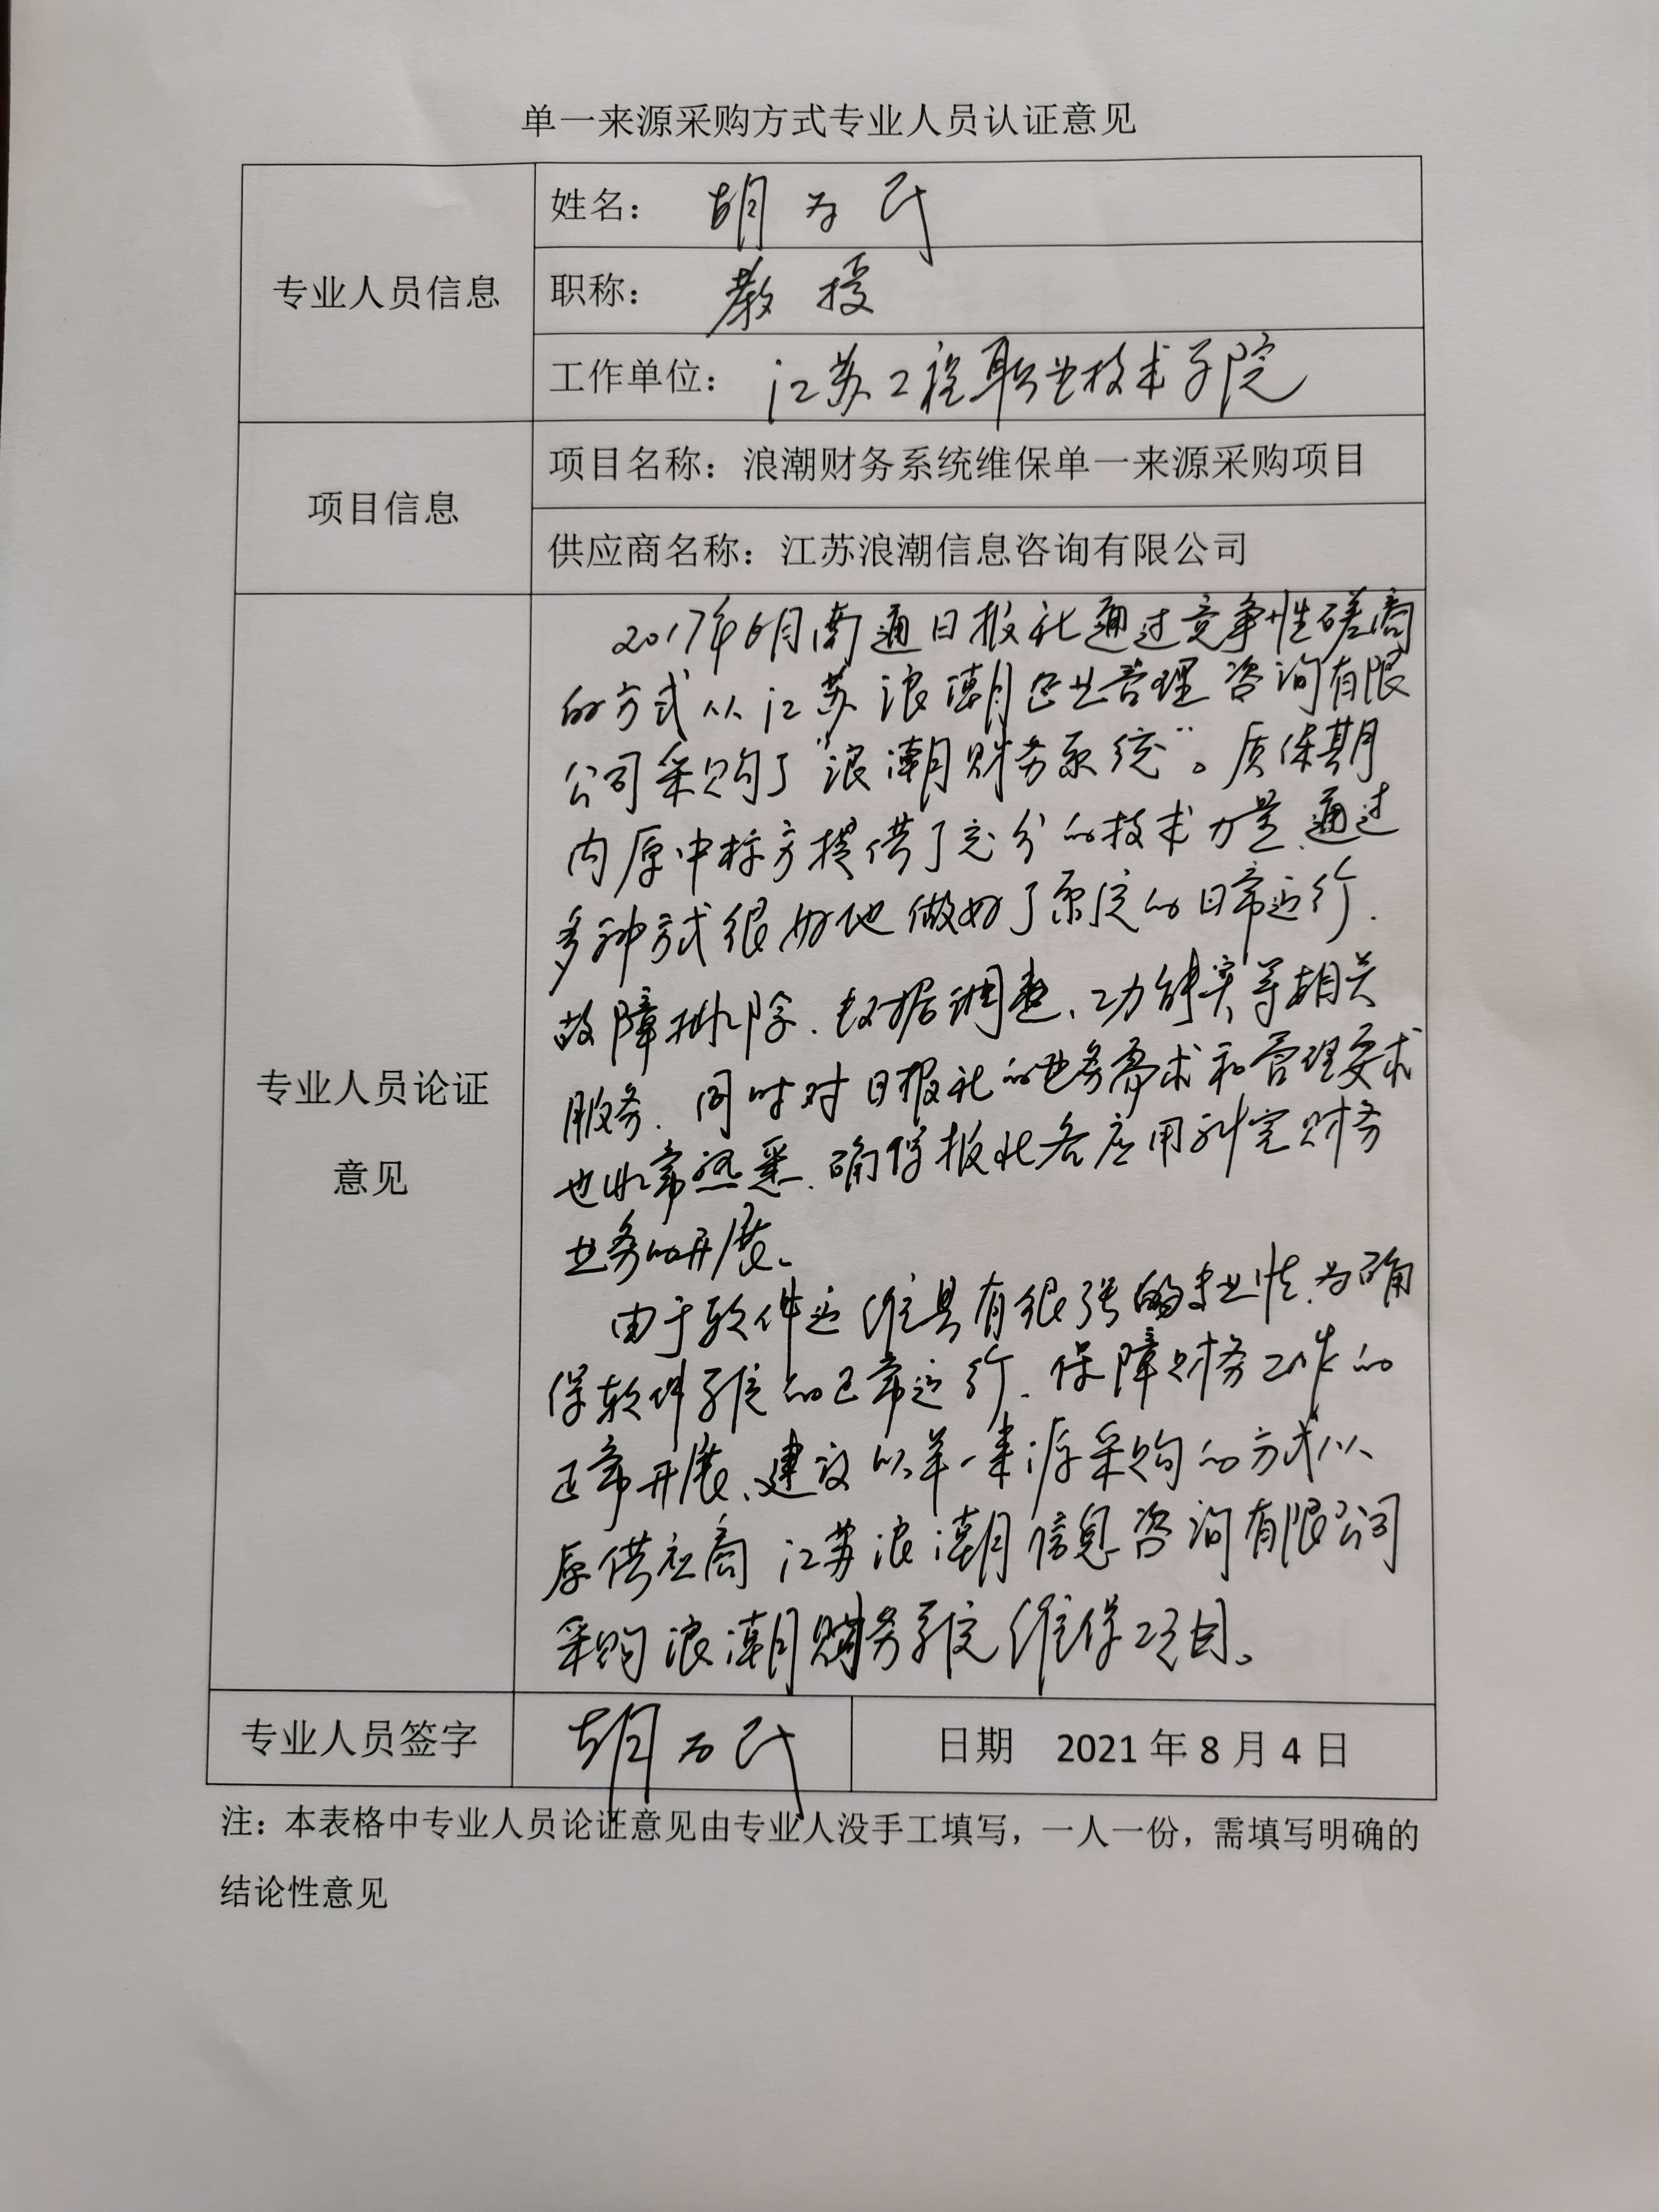 单一来源采购方式专业人员认证意见
专业人员信息
姓名：胡为民
职称：教授
工作单位：江苏工程职业技术学院
项目信息
项目名称：浪潮财务系统维保单一来源采购项目
供应商名称：江苏浪潮信息咨询有限公司
专业人员论证
意见
2017年6月南通日报社通过竞争性磋商
的方式从江苏浪潮企业管理咨询有限
公司采购了“浪潮财务系统”。质保期
内原中标方提供了充分的技术力量，通过
多种方式很好地做好了系统的日常运行、
故障排除、数据调整、功能实等相关
服务，同时对日报社的业务需求和管理要求
也非常熟悉，确保报社各应用科室财务
业务的开展。
由于软件运维具有很强的专业性，为确
保软件系统的正常运行，保障财务工作的
正常开展，建议以单一来源采购的方式从
原供应商江苏浪潮信息咨询有限公司
采购浪潮财务系统维保项目。
专业人员签字
胡为民
日期 2021年8月4日
注：本表格中专业人员论证意见由专业人没手工填写，一人一份，需填写明确的
结论性意见